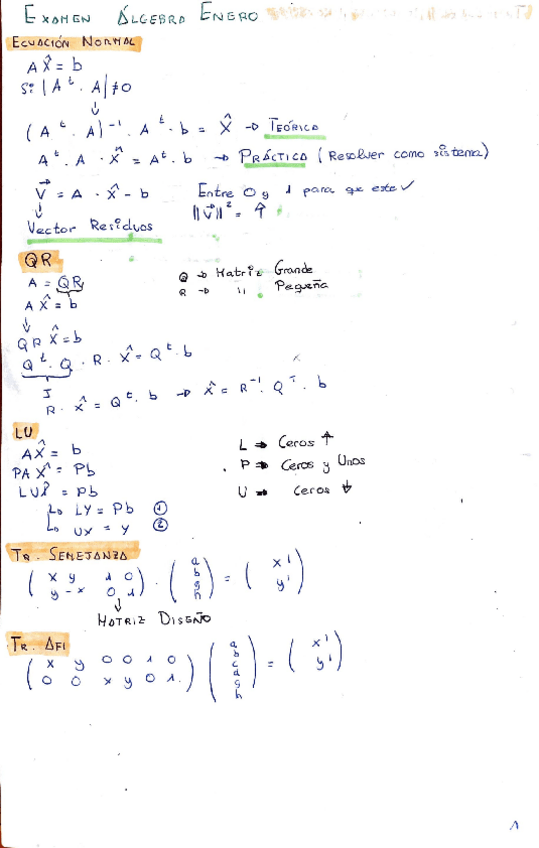 EXAMEN ÁLGEBRA ENERO
ECUACIÓN NORMAL
A X̂ = b
Si |A^t · A| ≠ 0
↓
(A^t · A)^-1 · A^t · b = X̂ → TEÓRICO
A^t · A · X̂ = A^t · b → PRÁCTICO (Resolver como sistema)
V⃗ = A · X̂ - b Entre 0 y 1 para que este ✓
↓ ||V⃗||² = ↑
Vector Residuos
QR
A = QR Q → Matriz Grande
A X̂ = b R → '' Pequeña
↓
Q R X̂ = b
Q^t · Q · R · X̂ = Q^t · b
I
R · X̂ = Q^t · b → X̂ = R^-1 · Q^T · b
LU
A X̂ = b L ⇒ Ceros ↑
PA X̂ = Pb P ⇒ Ceros y Unos
LU X̂ = Pb U ⇒ Ceros ↓
↳ LY = Pb ①
↳ UX = Y ②
TR. SEMEJANZA
( x y 1 0 ) · ( a ) = ( x' )
( y -x 0 1 ) ( b ) ( y' )
( g )
( h )
↓
MATRIZ DISEÑO
TR. AFI
( x y 0 0 1 0 ) ( a ) = ( x' )
( 0 0 x y 0 1 ) ( b ) ( y' )
( c )
( d )
( g )
( h )
1